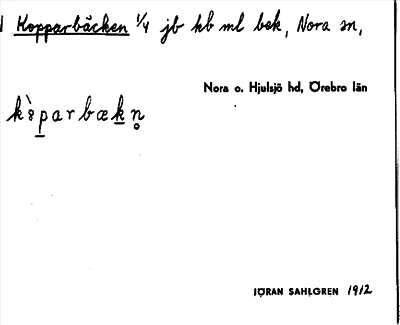 Kopparbäcken 1/4 jb kb ml bek, Nora sn,
Nora o. Hjulsjö hd, Örebro län
JÖRAN SAHLGREN 1912